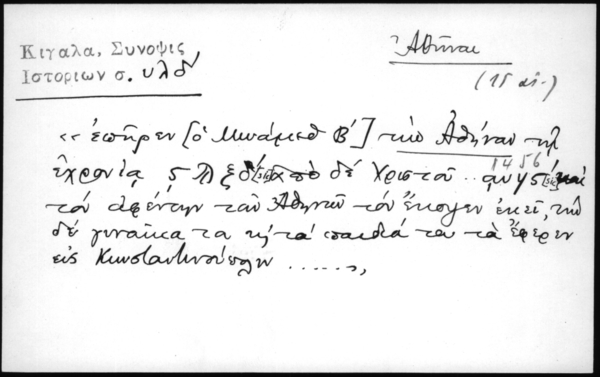 Κιγαλα, Συνοψις
Ιστοριων σ. υλδ´
Ἀθῆναι
(15 αἰ.)
«ἐπῆρεν [ὁ Μωάμεθ Β´] τὴν Ἀθήναν τῇ
ἐχρονίᾳ ςλξδ´ [sic] ἀπὸ δέ Χριστοῦ .. αυνς´ [sic] καὶ
1456
τὸν ἀφέντην τῶν Ἀθηνῶν τὸν ἔκοψεν ἐκεῖ, τὴν
δέ γυναῖκα τα κὴ τὰ παιδιά του τὰ ἔφερεν
εἰς Κωνσταντινούπολιν ......,